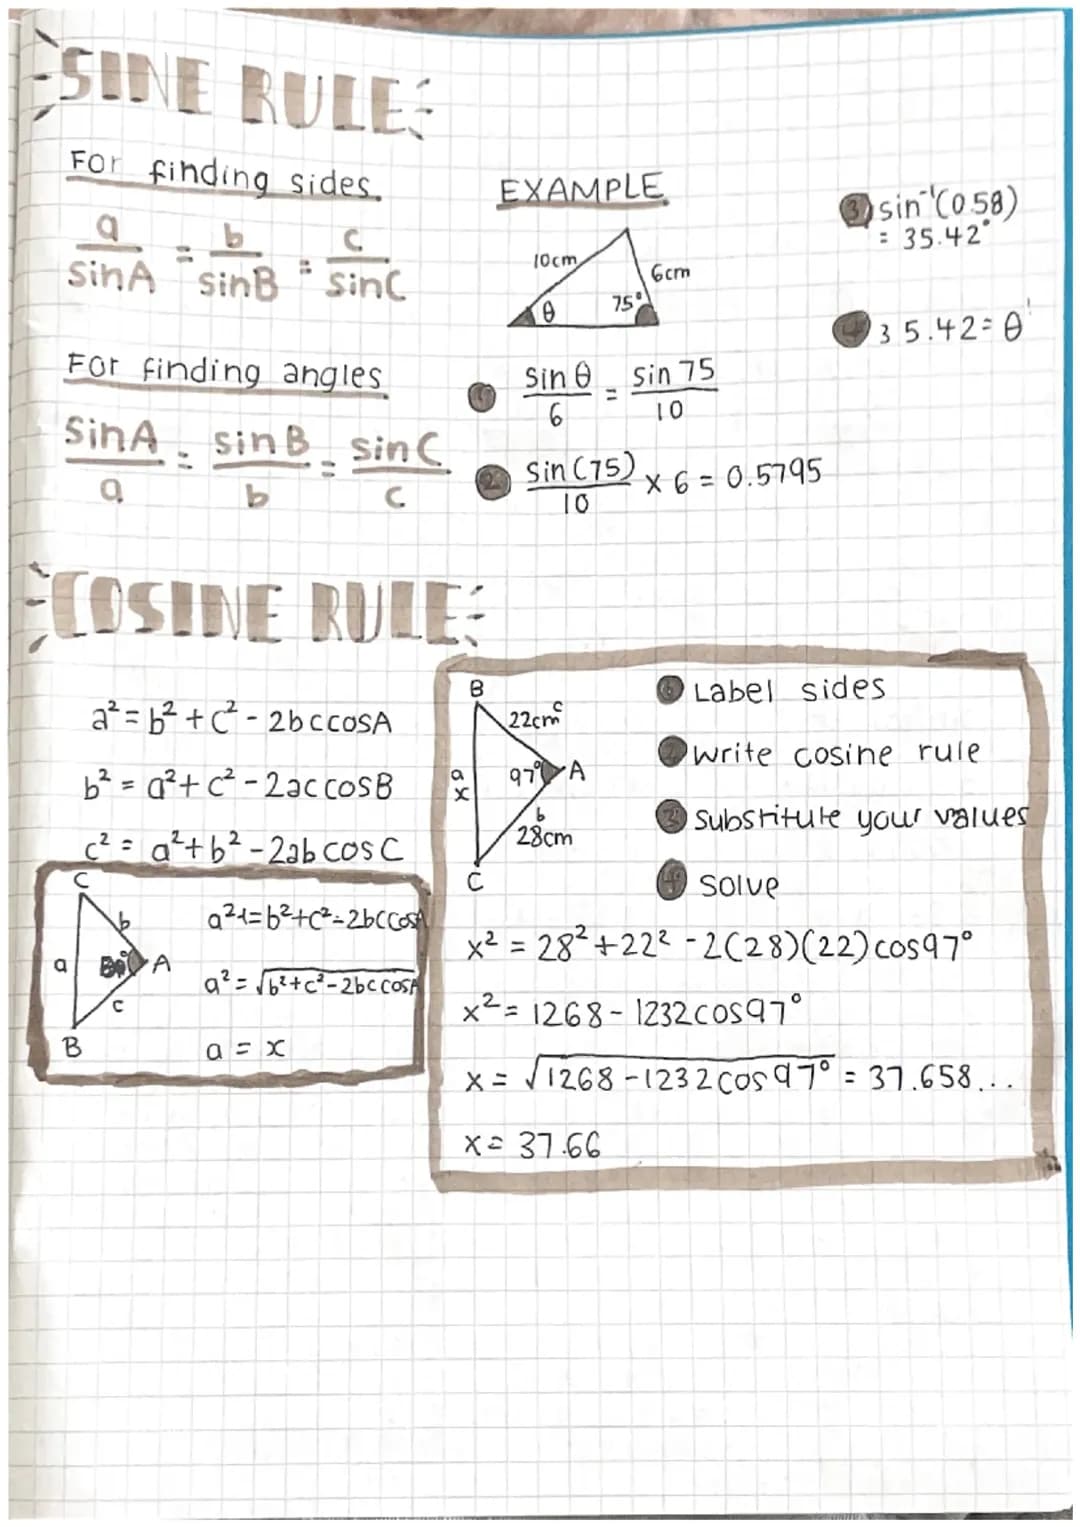 SINE RULE
For finding sides.
a/sinA = b/sinB = c/sinC
For finding angles
sinA/a = sinB/b = sinC/c
EXAMPLE
10cm
6cm
θ
75°
① sinθ/6 = sin 75/10
② sin(75)/10 × 6 = 0.5795
③ sin⁻¹(0.58)
= 35.42°
④ 35.42=θ
COSINE RULE
a² = b² + c² - 2bccosA
b² = a² + c² - 2accosB
c² = a² + b² - 2abcosC
C
b
a
A
c
B
a² = b²+c²-2bccosA
a² = √b²+c²-2bccosA
a = x
B
22cm c
a
x
97° A
b
28cm
C
① Label sides
② Write cosine rule
③ Substitute your values
④ Solve
x² = 28² + 22² - 2(28)(22)cos97°
x² = 1268 - 1232cos97°
x = √1268 - 1232cos97° = 37.658...
x = 37.66